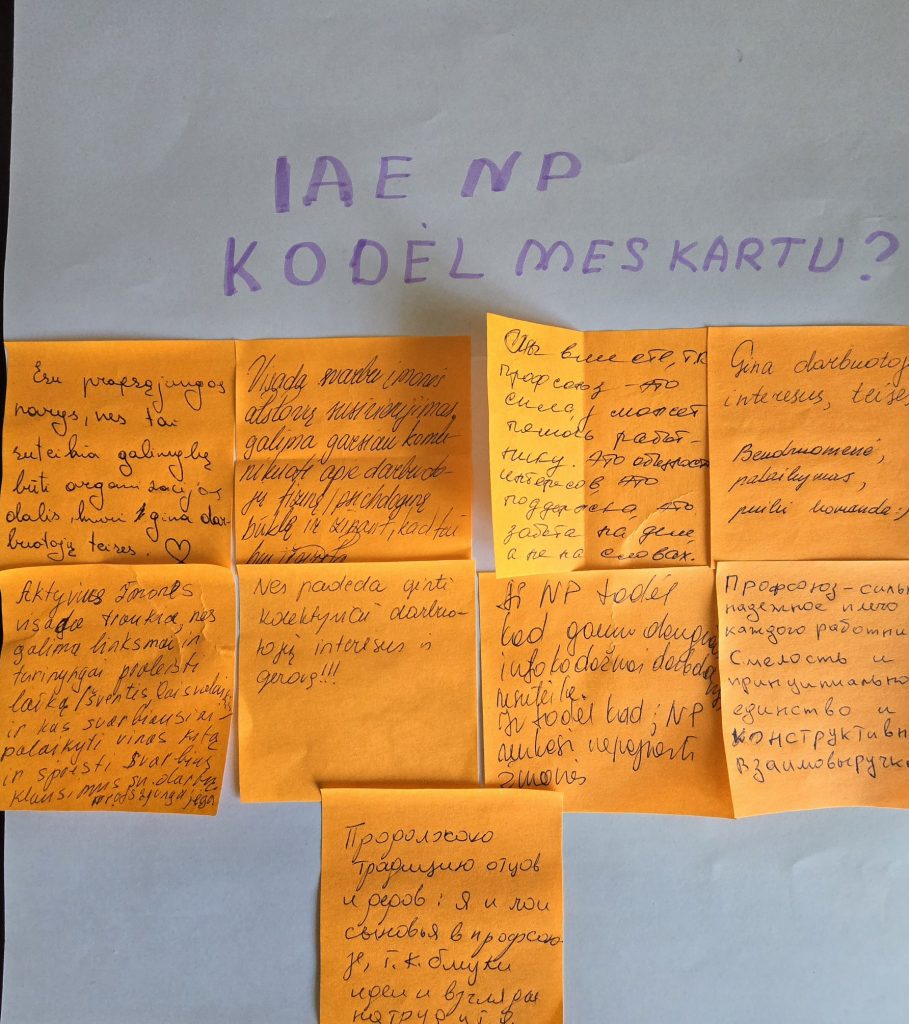 IAE NP
KODĖL MES KARTU?
Esu profsąjungos
narys, nes tai
suteikia galimybę
būti organizacijos
dalis, kuri gina dar-
buotojų teises. ♡
Visada svarbu įmonės
atstovų susivienijimas,
galima garsiau komu-
nikuoti apie darbuoto-
jų fizinę/psichologinę
būklę ir siekiant, kad tai
Мы вместе, т.к.
профсоюз - это
сила, может
помочь работ-
нику. Это общность
интересов, это
поддержка, это
забота на деле
а не на словах.
Gina darbuotoj
interesus, teises
Bendruomenė,
palaikymas,
puiki komanda :)
Aktyvius žmonės
visada traukia, nes
galima linksmai ir
turiningai praleisti
laiką (šventes, laisvalaikį)
ir kas svarbiausia -
palaikyti vienas kitą
ir spręsti svarbius
klausimus su darbu
Profsąjunga jėga
Nes padeda ginti
kolektyviai darbuo-
tojų interesus ir
gerovę!!!
Iš NP todėl
kad gaunu daugiau
info
Ir todėl kad į NP
žmonės
Профсоюз - сильн
надежное плечо
каждого работни
Смелость и
принципиально
единство и
конструктивн
взаимовыручка
Продолжаю
традицию отцов
и дедов: я и мои
сыновья в профсою-
зе, т.к. близки
идеи и взгляды
на труд и т.д.